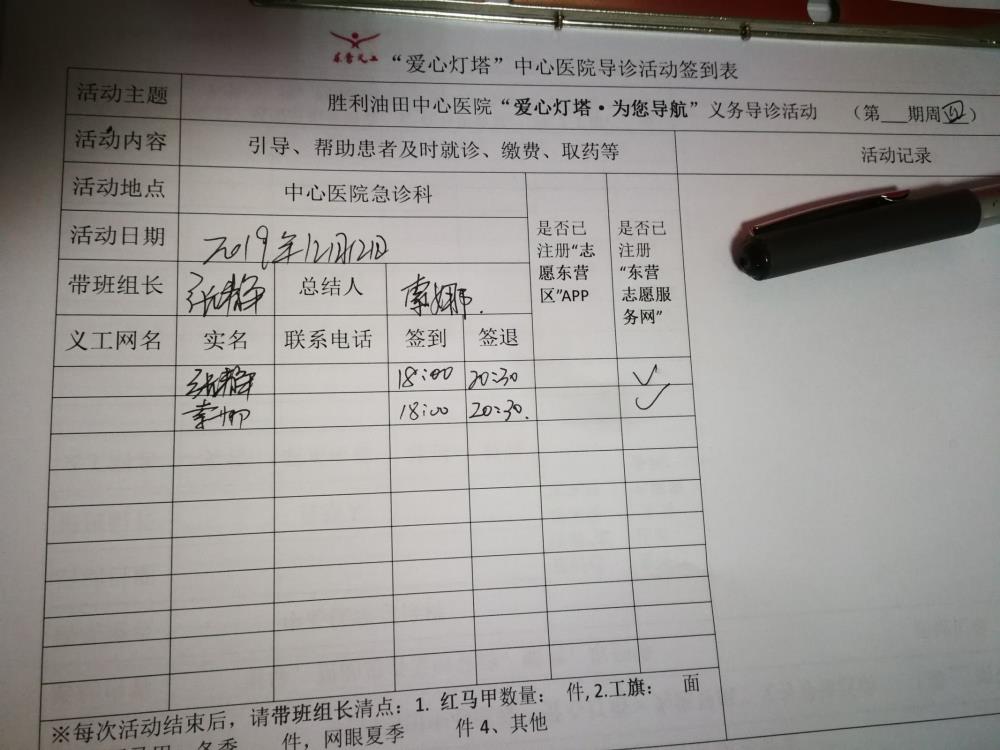 东营义工
“爱心灯塔”中心医院导诊活动签到表
活动主题 胜利油田中心医院“爱心灯塔·为您导航”义务导诊活动 （第 期周四）
活动内容 引导、帮助患者及时就诊、缴费、取药等 活动记录
活动地点 中心医院急诊科 是否已注册“志愿东营区”APP 是否已注册“东营志愿服务网”
活动日期 2019年12月12日
带班组长 张静 总结人 索娜.
义工网名 实名 联系电话 签到 签退
张静 18:00 20:30 ✓
索娜 18:00 20:30. ✓
※每次活动结束后，请带班组长清点：1. 红马甲数量： 件, 2.工旗： 面
冬季 件，网眼夏季 件 4、其他